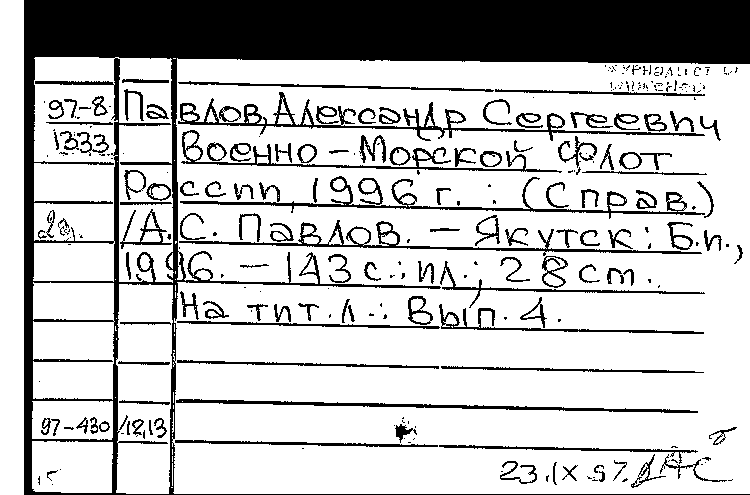 ЖУРНАЛИСТ
97-8 Павлов, Александр Сергеевич
1333 Военно-Морской Флот
России, 1996 г. : (Справ.)
2э. /А.С. Павлов. – Якутск: Б.и.,
1996. – 143 с.: ил.; 28 см.
На тит. л.: Вып. 4.
97-430 /12,13
23.IX 97.